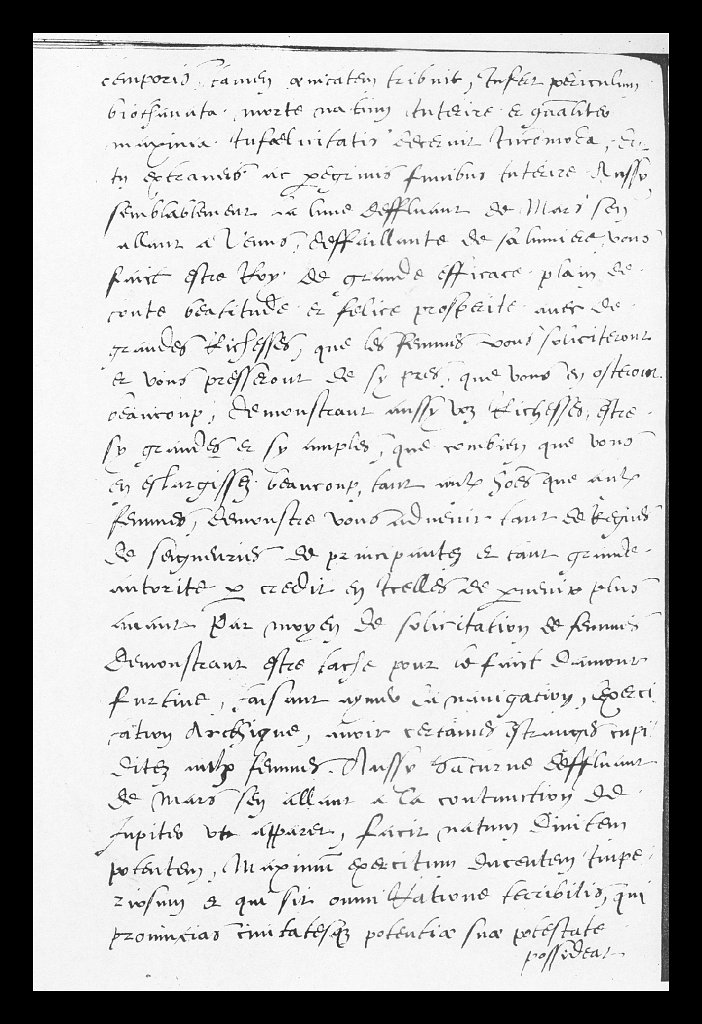 temporis, tamen unitatem tribuit, Infert periculum
biothanata morte natum Interire et qualiter
maxima Infœlicitatis decernit Incomoda, et
in extraneis ac peregrinis finibus Interire Aussy
semblablement la lune deffluant de Mars sen
allant a Venus, deffaillante de sa lumiere, vous
faict estre Roy de grande efficace plain de
toute beatitude et felice prosperite avec de
grandes Richesses, que les femmes vous soliciteront
et vous presseront de sy pres, que vous en osteront
beaucoup, demonstrant aussy voz Richesses, estre
sy grandes et sy amples, que combien que vous
en eslargissez beaucoup, tant aulx hoes que aulx
femmes, demonstre vous advenir tant de Regnes
de seigneuries de principautez et tant grande
autorite p credit en Icelles de pvenir plus
avant Par moyen de solicitation de femmes
demonstrant estre tache pour le faict damour
furtive, faisant aymer la navigation, exerci
tation Archique, avoir certaines estranges cupi
ditez aulx femmes. Aussy Saturne deffluant
de Mars sen allant a la conjunction de
Jupiter ut apparet, facit natum divitem
potentem, Maximū exercitum ducentem Impe
riosum et qui sit omni Ratione terribilis, qui
provincias civitatesqz potentiæ suæ potestate
possideat